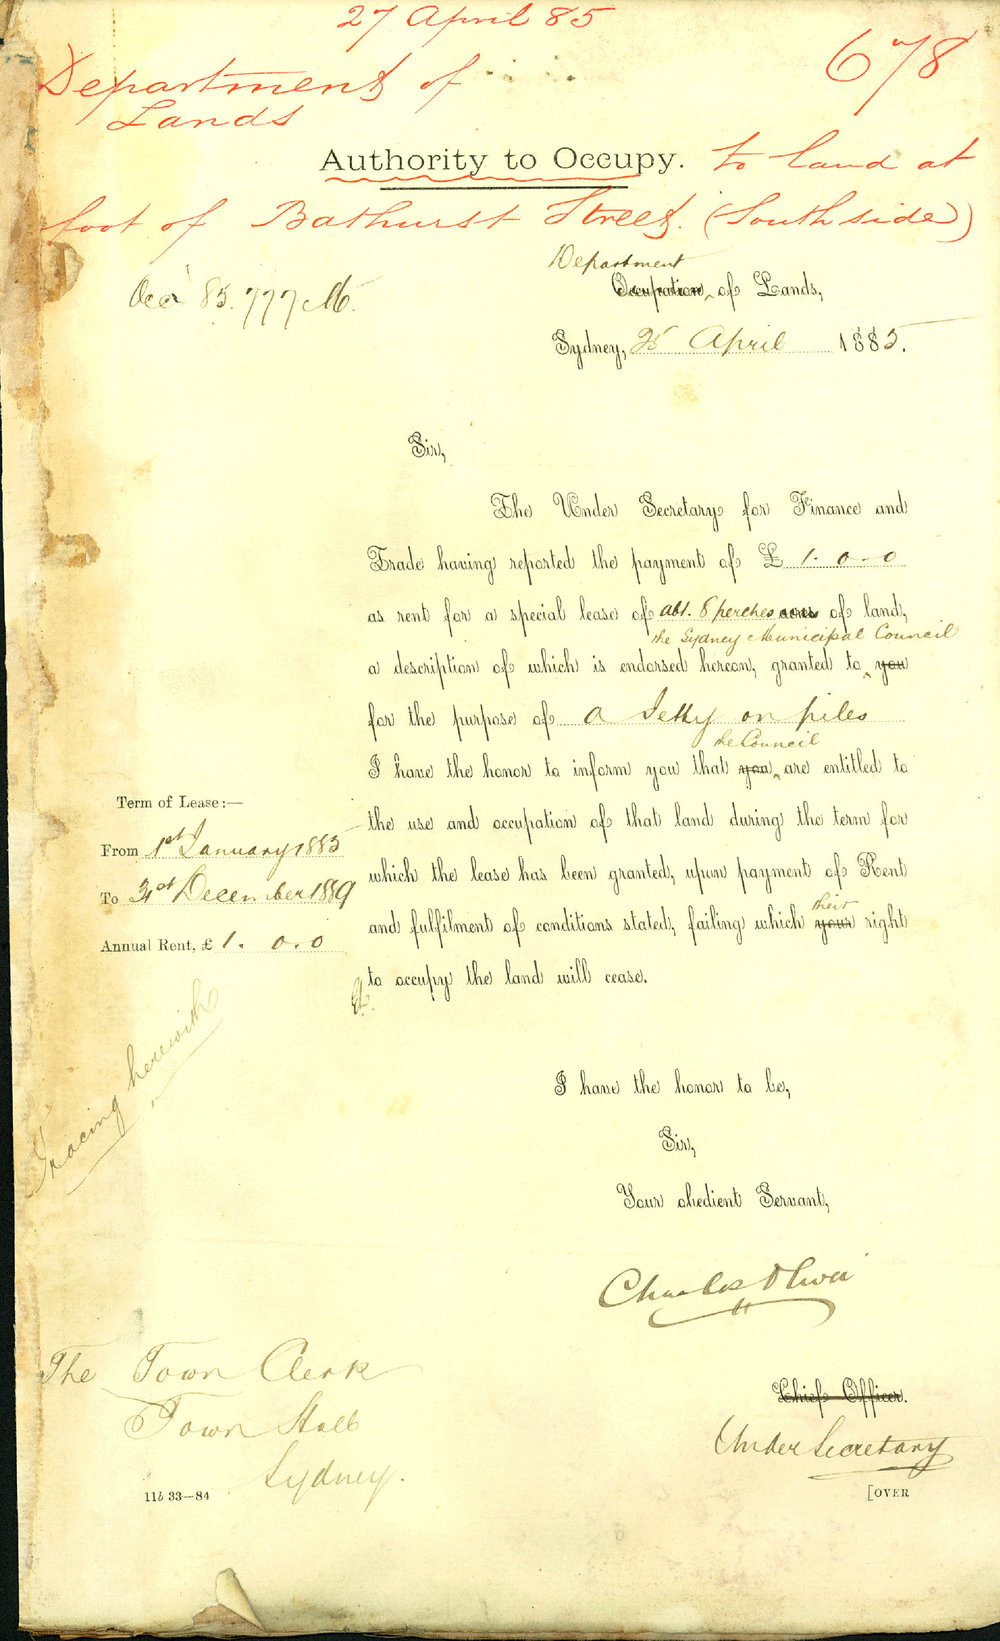 27 April 85
678
Department of
Lands
Authority to Occupy. to land at
foot of Bathurst Street. (South side)
Department
Occn 85. 777 M.
Occupation of Lands,
Sydney, 25 April 1885.
Sir,
The Under Secretary for Finance and
Trade having reported the payment of £ 1. 0 - 0
as rent for a special lease of abt. 8 perches acres of land,
the Sydney Municipal Council
a description of which is endorsed hereon, granted to you
for the purpose of a Jetty on piles
the Council
I have the honor to inform you that you are entitled to
Term of Lease:—
the use and occupation of that land during the term for
From 1st January 1885
which the lease has been granted, upon payment of Rent
To 31st December 1889
their
and fulfilment of conditions stated, failing which your right
Annual Rent, £ 1. 0.0
to occupy the land will cease.
Tracing herewith
I have the honor to be,
Sir,
Your obedient Servant,
Charles Oliver
The Town Clerk
Chief Officer.
Town Hall
Under Secretary
Sydney.
11b 33—84
[OVER